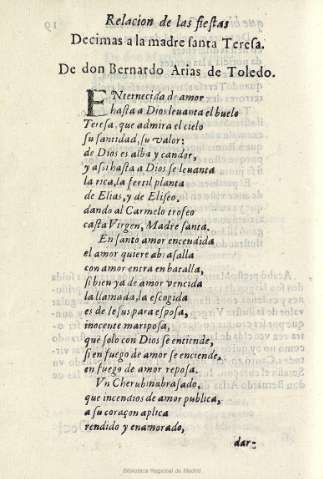 Relacion de las fiestas
Decimas a la madre santa Teresa.
De don Bernardo Arias de Toledo.
ENternecida de amor
hasta a Dios leuanta el buelo
Teresa, que admira el cielo
su santidad, su valor;
de Dios es alba y candor,
y assi hasta a Dios se leuanta
la rica, la fertil planta
de Elias, y de Eliseo.
dando al Carmelo trofeo
casta Virgen, Madre santa.
En santo amor encendida
el amor quiere abrasalla
con amor entra en batalla,
si bien ya de amor vencida
la llamada, la escogida
es de Iesus para esposa,
inocente mariposa,
que solo con Dios se enciende,
si en fuego de amor se enciende,
en fuego de amor reposa.
Vn Cherubin abrasado,
que incendios de amor publica,
a su coraçon aplica
rendido y enamorado,
dar-
Biblioteca Regional de Madrid